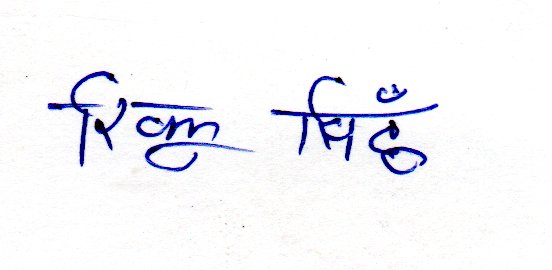 रिंकू सिहँ